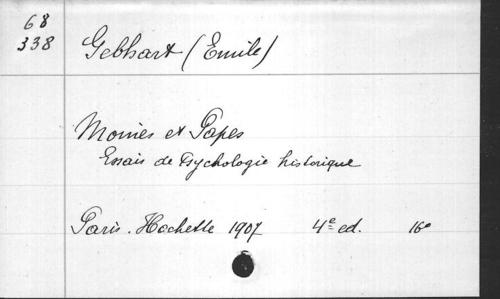 68
338
Gebhart (Emile)
Moines et Papes
Essais de Psychologie historique
Paris. Hachette 1907 4e ed. 16o